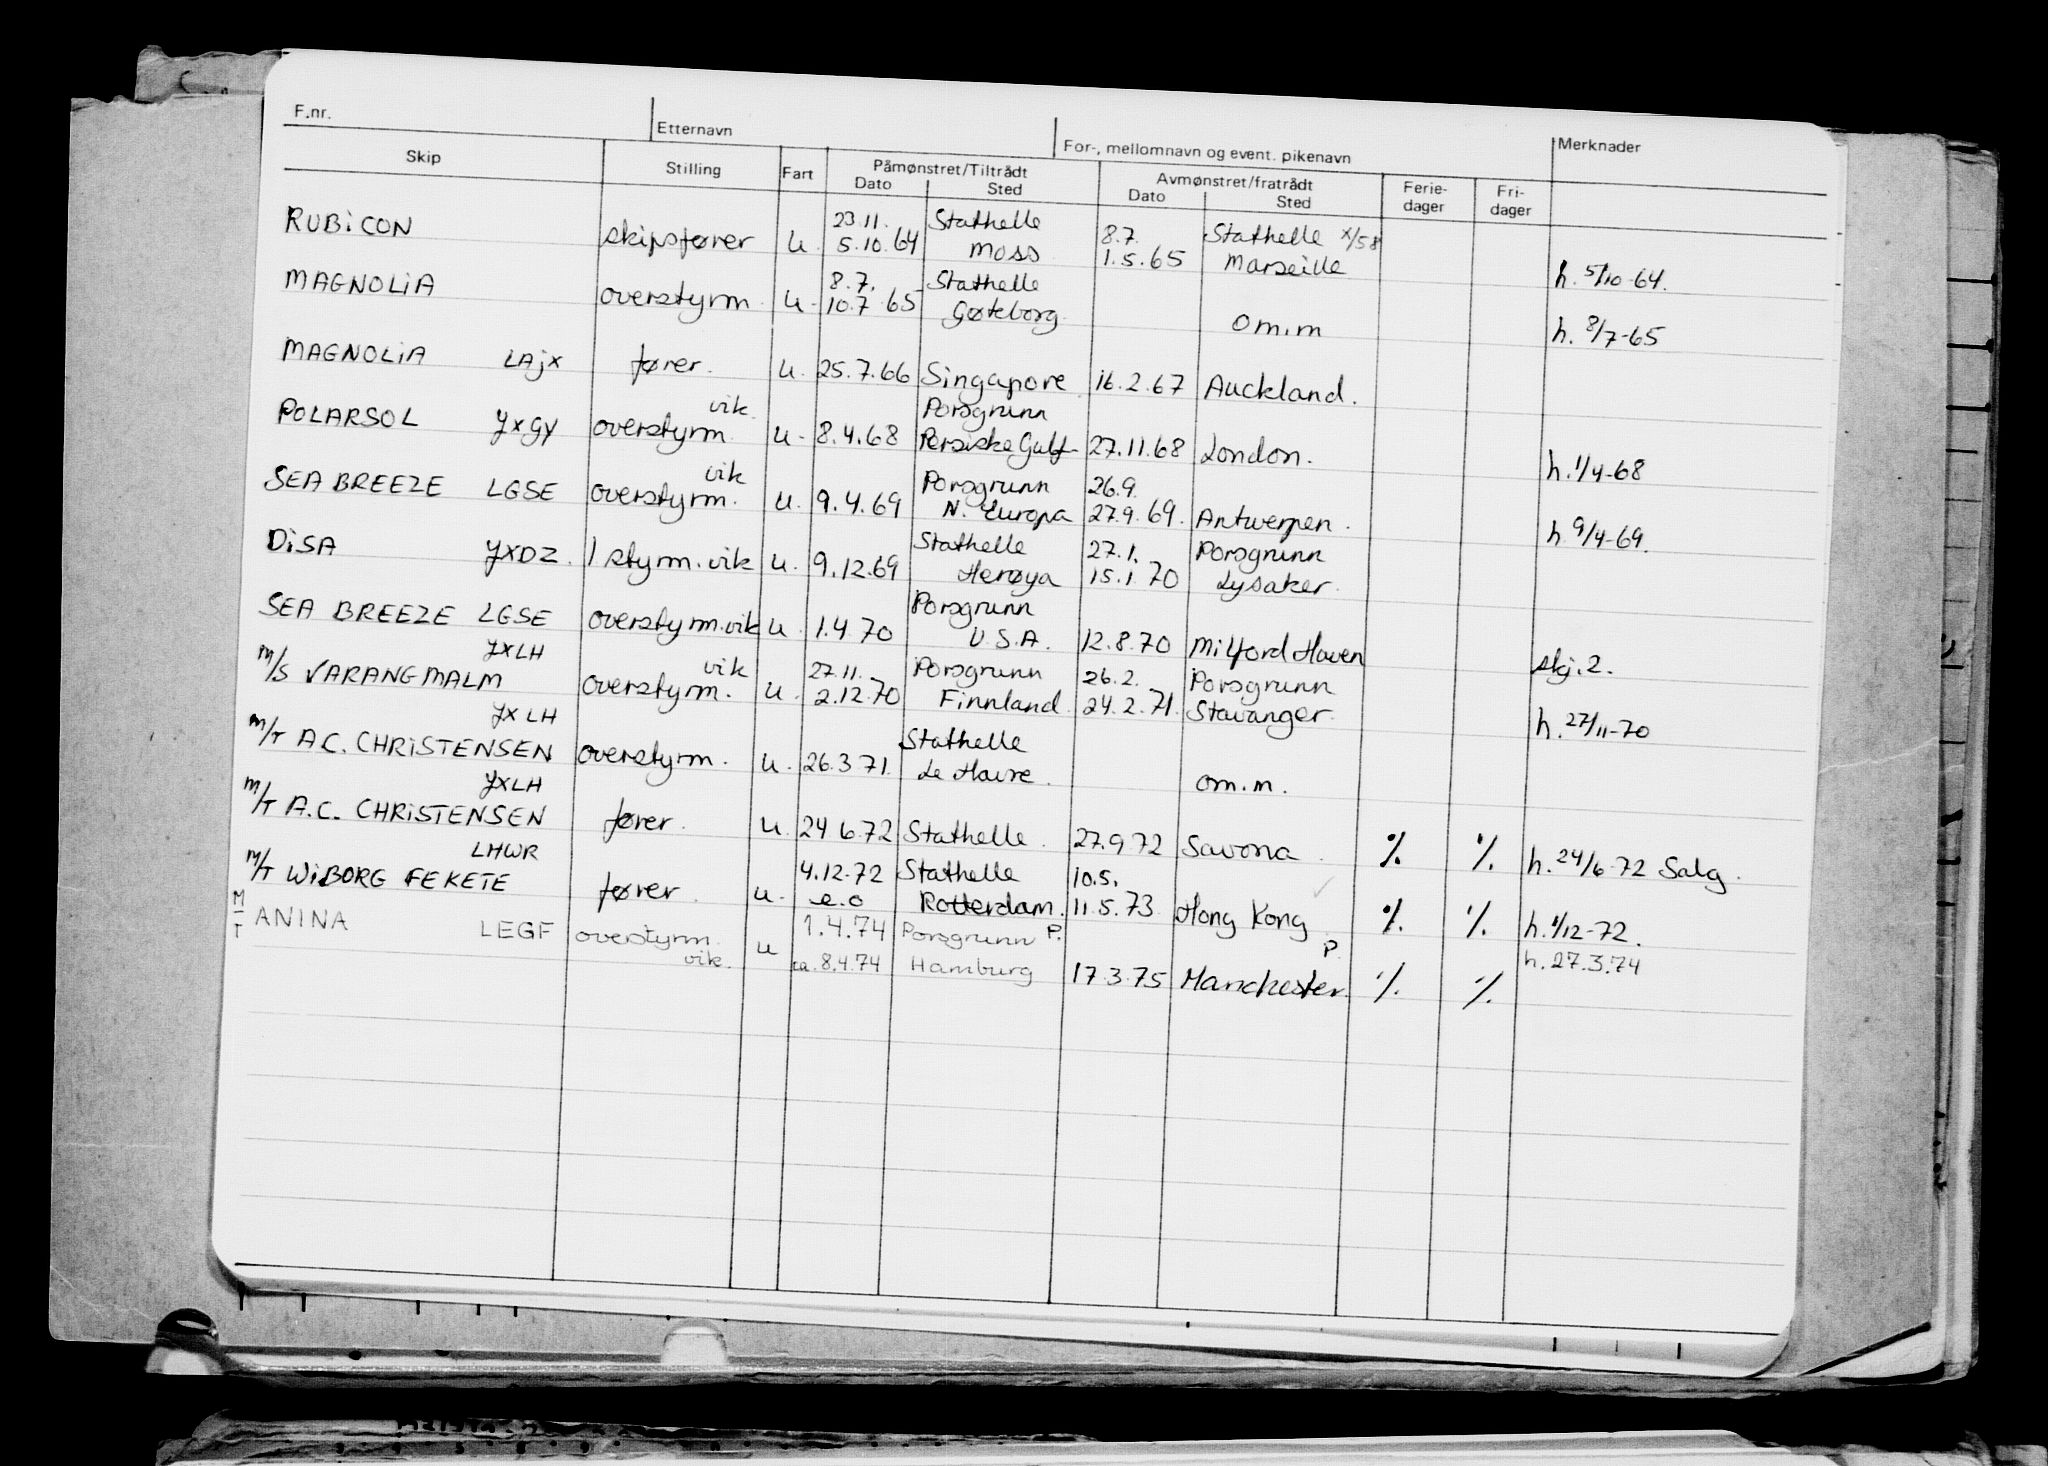 F.nr. Etternavn For-, mellomnavn og event. pikenavn Merknader
Skip Stilling Fart Påmønstret/Tiltrådt Avmønstret/fratrådt Ferie- Fri-
Dato Sted Dato Sted dager dager
23.11. Stathelle 8.7. Stathelle x/58
RUBICON skipsfører u. 5.10.64 Moss 1.5.65 Marseille h. 5/10-64.
8.7. Stathelle
MAGNOLIA overstyrm. u. 10.7.65 Gøteborg om.m h. 8/7-65
MAGNOLIA LAJX fører. u. 25.7.66 Singapore 16.2.67 Auckland.
vik. Porsgrunn
POLARSOL JXGY overstyrm. u. 8.4.68 Persiske Gulf 27.11.68 London. h. 1/4-68
vik Porsgrunn 26.9.
SEA BREEZE LGSE overstyrm. u. 9.4.69 N. Europa 27.9.69. Antwerpen. h. 9/4-69.
Stathelle 27.1. Porsgrunn
DISA JXDZ. 1 styrm. vik u. 9.12.69 Herøya 15.1.70 Lysaker.
Porsgrunn
SEA BREEZE LGSE overstyrm. vik u. 1.4.70 U.S.A. 12.8.70 Milford Haven skj. 2.
JXLH vik 27.11. Porsgrunn 26.2. Porsgrunn
M/S VARANGMALM overstyrm. u. 2.12.70 Finnland 24.2.71. Stavanger. h. 27/11-70
JXLH Stathelle
M/T A.C. CHRISTENSEN overstyrm. u. 26.3.71. Le Havre. om.m.
JXLH
M/T A.C. CHRISTENSEN fører. u. 24.6.72 Stathelle. 27.9.72 Savona. % % h. 24/6-72 Salg.
LHWR 4.12.72 Stathelle 10.5.
M/T WIBORG FEKETE fører. u. e.o Rotterdam. 11.5.73 Hong Kong % % h. 1/12-72.
M/T ANINA LEGF overstyrm. u 1.4.74 Porsgrunn P. P. h. 27.3.74
vik. ca. 8.4.74 Hamburg 17.3.75 Manchester. % %